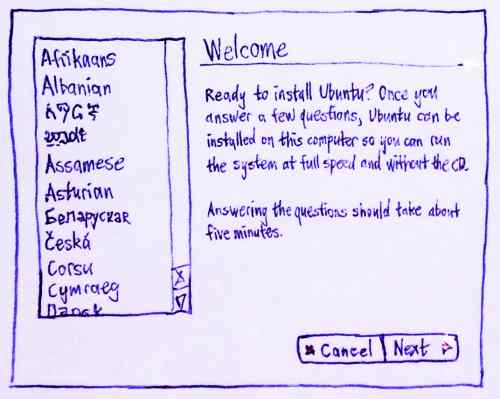 Afrikaans
Albanian
Assamese
Asturian
Беларуская
Česká
Corsu
Cymraeg
Welcome
Ready to install Ubuntu? Once you
answer a few questions, Ubuntu can be
installed on this computer so you can run
the system at full speed and without the CD.
Answering the questions should take about
five minutes.
Cancel
Next